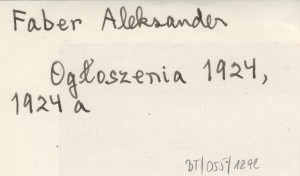 Faber Aleksander
Ogłoszenia 1924,
1924 a
BT/055/1292